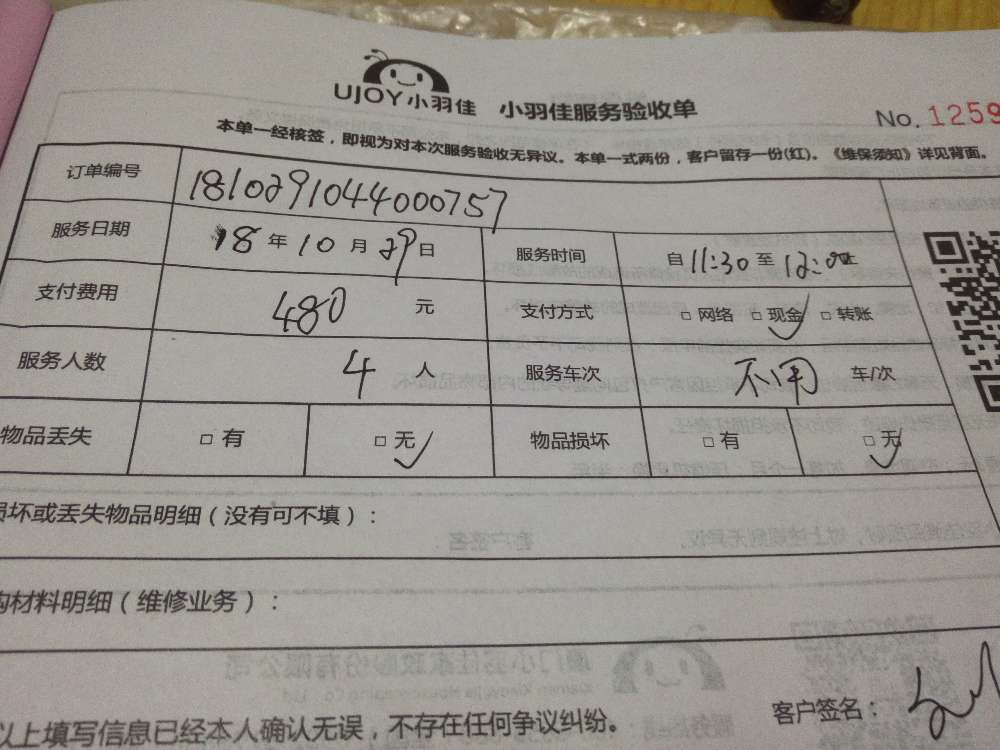 UJOY小羽佳 小羽佳服务验收单
No. 1259
本单一经核签，即视为对本次服务验收无异议。本单一式两份，客户留存一份(红)。《维保须知》详见背面。
订单编号 1810291044000757
服务日期 18 年 10 月 29 日 服务时间 自 11:30 至 12:00 止
支付费用 480 元 支付方式 □ 网络 □ 现金 ✓ □ 转账
服务人数 4 人 服务车次 不用 车/次
物品丢失 □ 有 □ 无 ✓ 物品损坏 □ 有 □ 无 ✓
损坏或丢失物品明细（没有可不填）：
购材料明细（维修业务）：
以上填写信息已经本人确认无误，不存在任何争议纠纷。
客户签名：